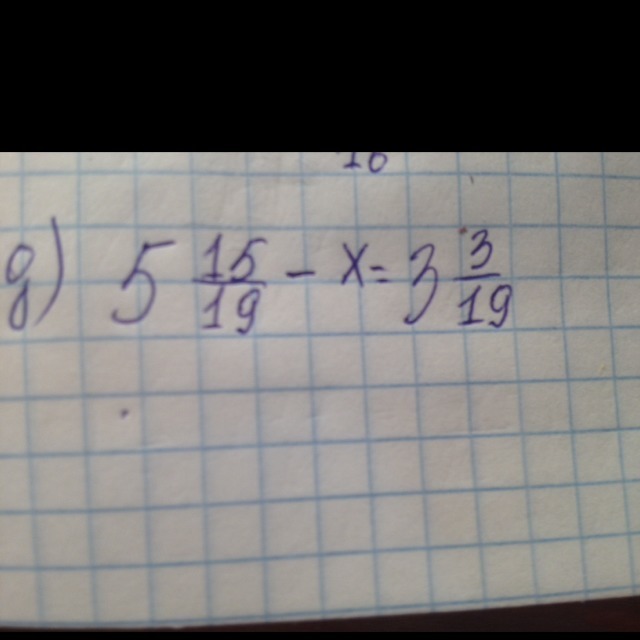 16
g) 5 15/19 - x = 3 3/19